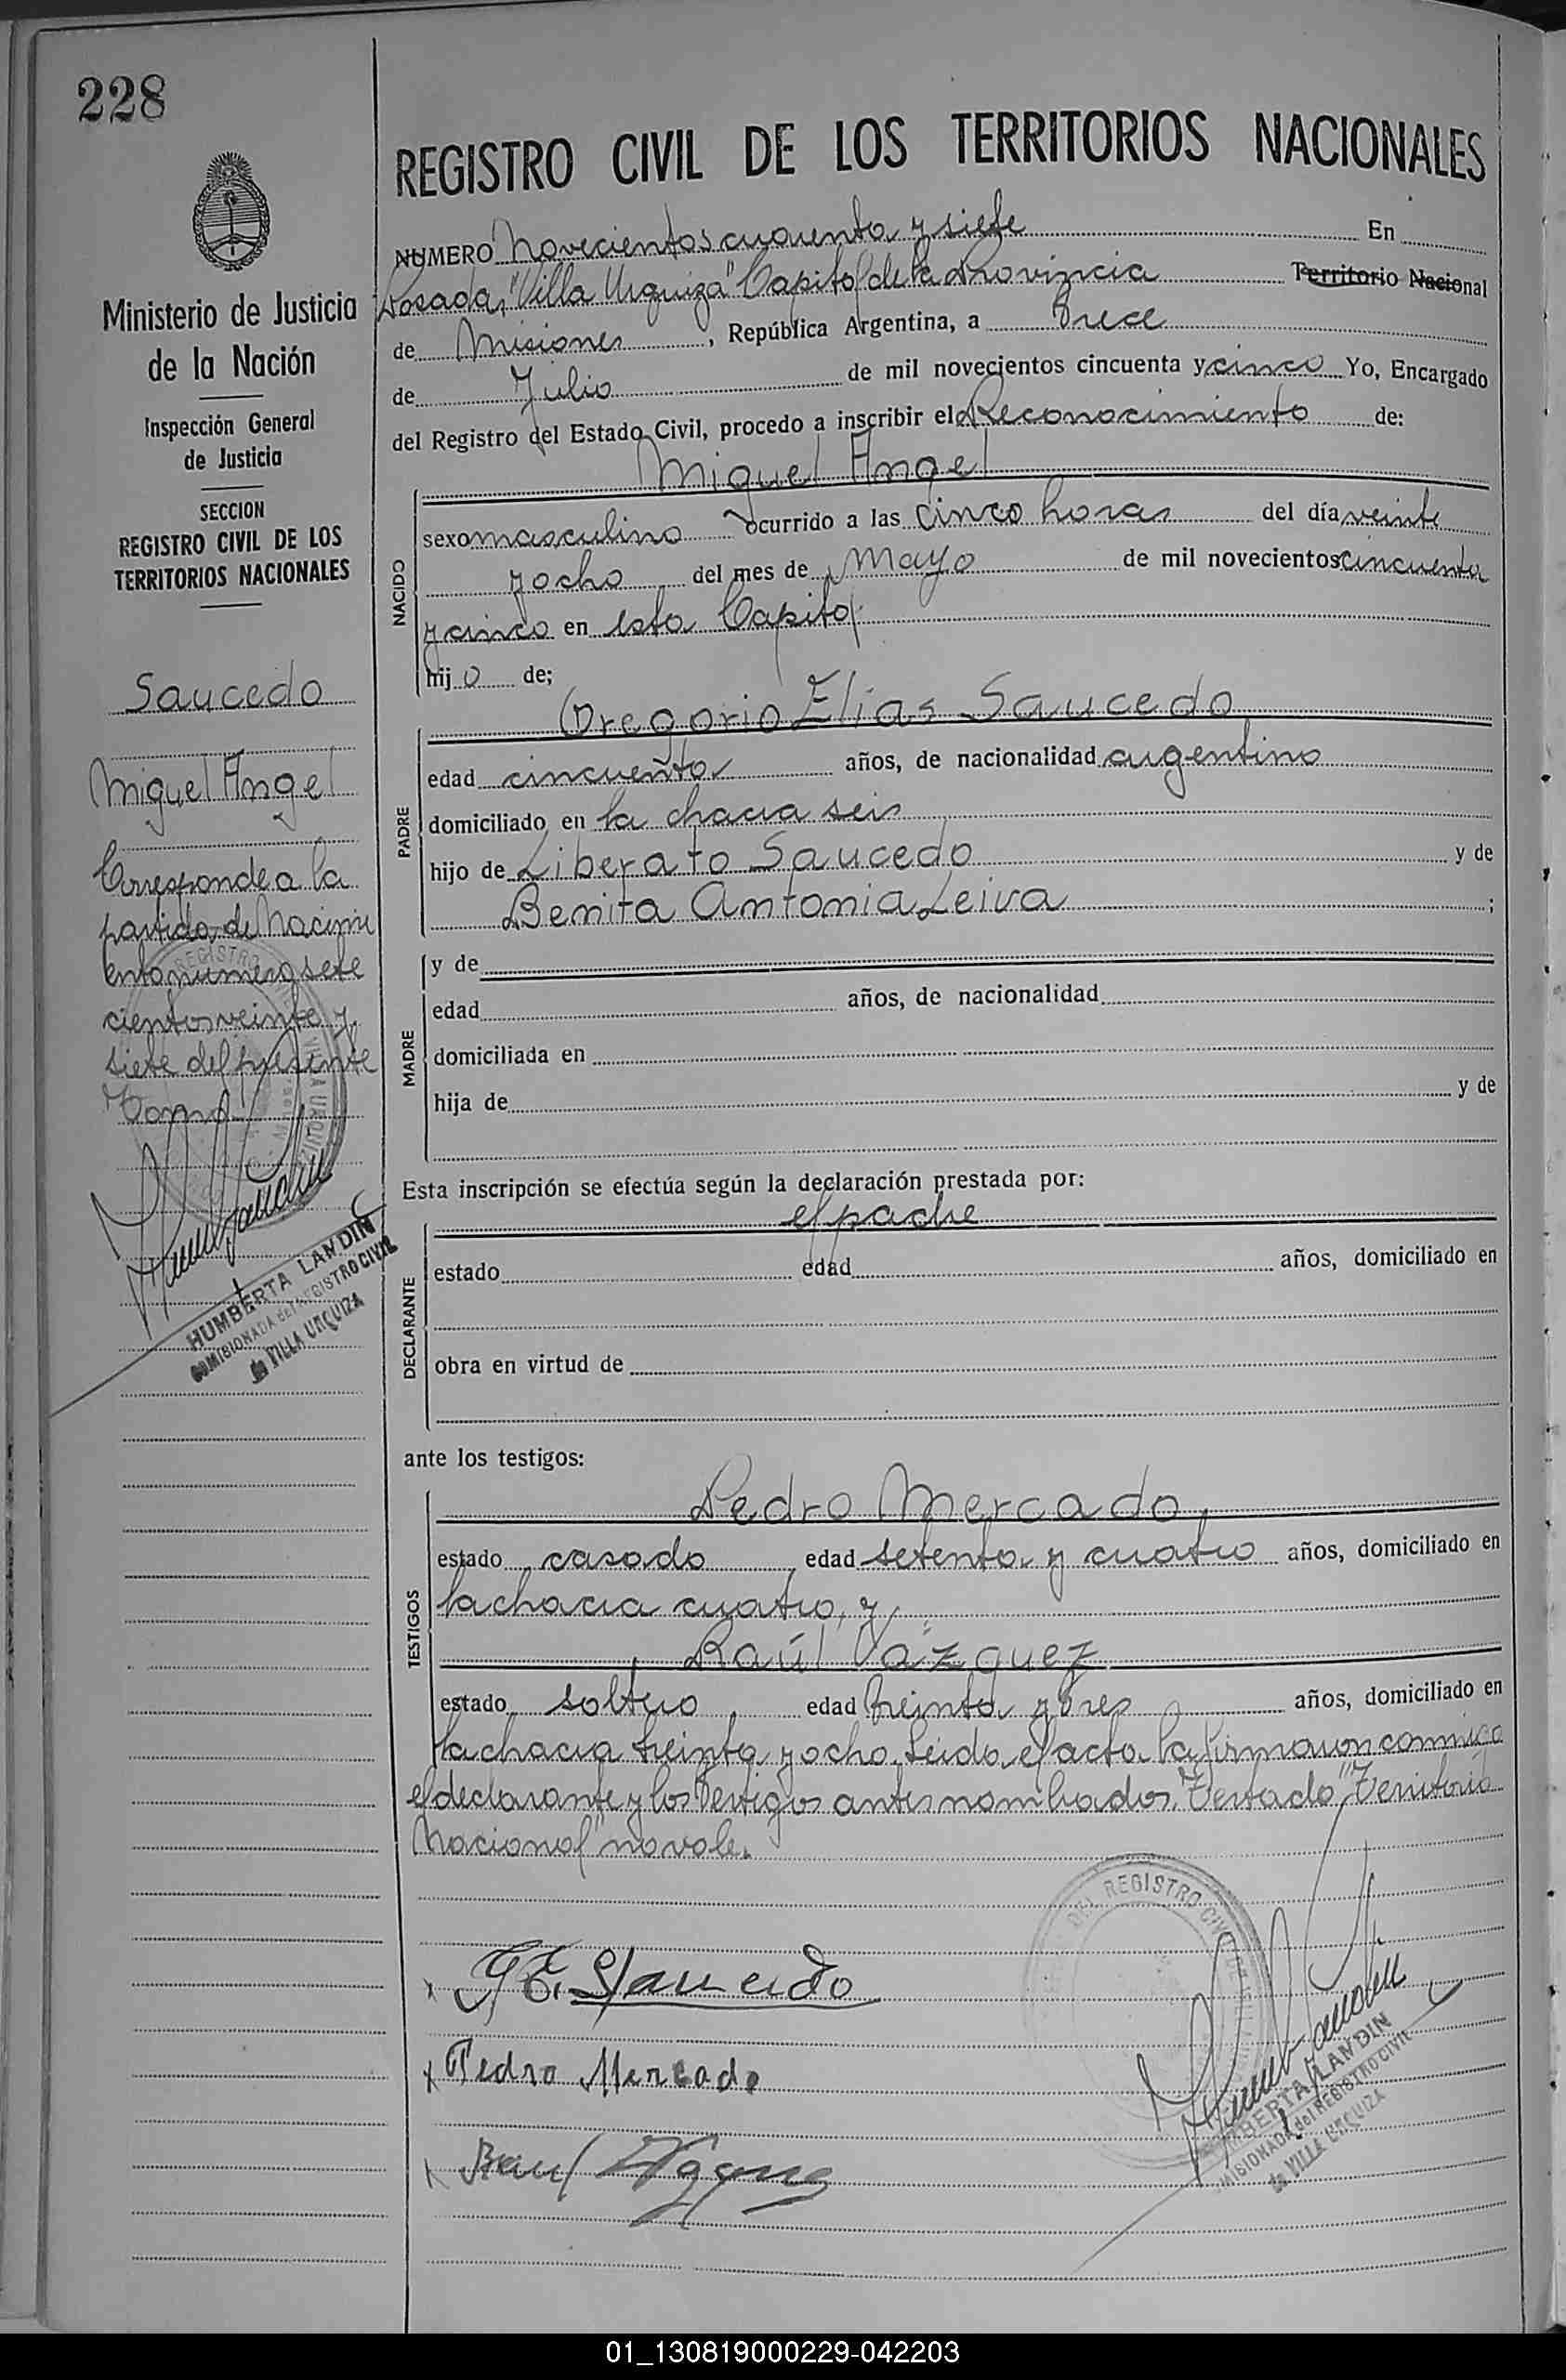 228
REGISTRO CIVIL DE LOS TERRITORIOS NACIONALES
NUMERO Novecientos cuarenta y siete En
Posadas, "Villa Urquiza" Capital de la Provincia Territorio Nacional
de Misiones, República Argentina, a Trece
de Julio de mil novecientos cincuenta y cinco Yo, Encargado
del Registro del Estado Civil, procedo a inscribir el Reconocimiento de:
Ministerio de Justicia
de la Nación
Inspección General
de Justicia
SECCION
REGISTRO CIVIL DE LOS
TERRITORIOS NACIONALES
Saucedo
Miguel Angel
Corresponde a la
partida de Nacimi
ento número sete
cientos veinte y
siete del presente
Tomo.
HUMBERTA LANDIN
COMISIONADA del REGISTRO CIVIL
de VILLA URQUIZA
NACIDO
Miguel Angel
sexo masculino ocurrido a las cinco horas del día veinte
y ocho del mes de Mayo de mil novecientos cincuenta
y cinco en esta Capital.
hijo de;
PADRE
Gregorio Elías Saucedo
edad cincuenta años, de nacionalidad argentino
domiciliado en la chacra seis
hijo de Liberato Saucedo y de
Benita Antonia Leiva ;
MADRE
y de
edad años, de nacionalidad
domiciliada en
hija de y de
Esta inscripción se efectúa según la declaración prestada por:
DECLARANTE
el padre
estado edad años, domiciliado en
obra en virtud de
ante los testigos:
TESTIGOS
Pedro Mercado,
estado casado edad setenta y cuatro años, domiciliado en
la chacra cuatro, y
Raúl Vázquez
estado soltero edad treinta y tres años, domiciliado en
la chacra treinta y ocho. Leída el acta la firmaron conmigo
el declarante y los testigos antes nombrados. Testado "Territorio
Nacional" no vale.
REGISTRO CIVIL
x G E. Saucedo
x Pedro Mercado
x Raul
HUMBERTA LANDIN
COMISIONADA del REGISTRO CIVIL
de VILLA URQUIZA
01_130819000229-042203